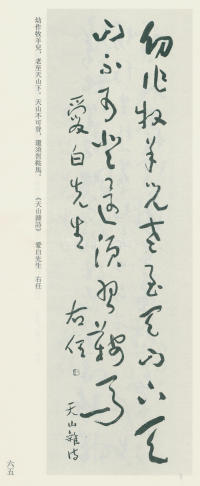 幼作牧羊兒老至天山下天
山不可登還須習鞍馬
愛白先生 右任
天山雜詩
幼作牧羊兒，老至天山下。天山不可登，還須習鞍馬。 《天山雜詩》 愛白先生 右任
六五